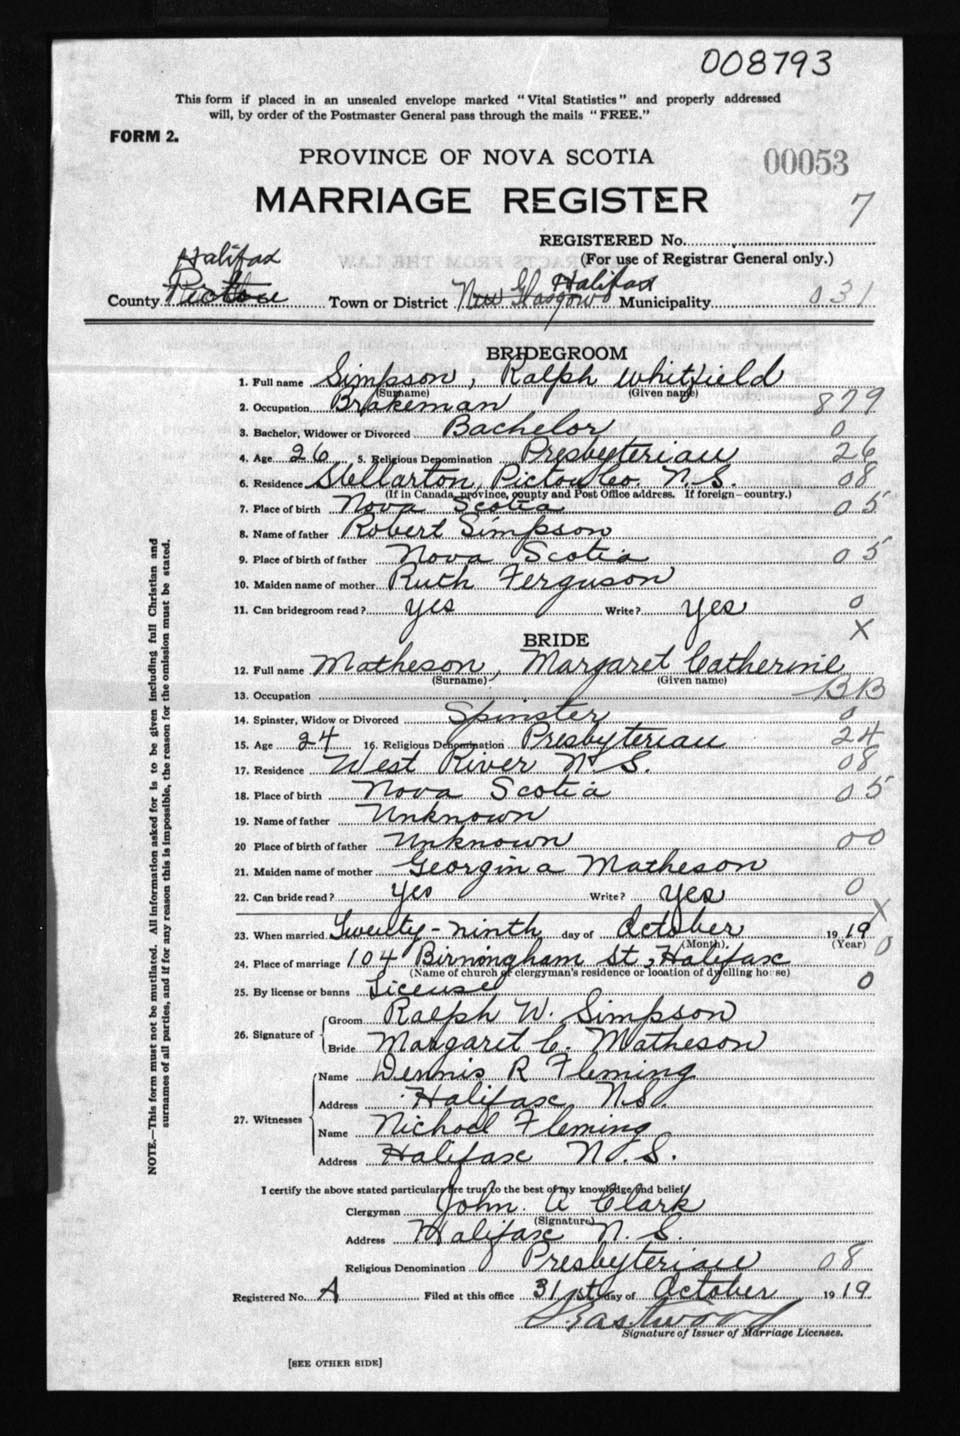 008793
This form if placed in an unsealed envelope marked "Vital Statistics" and properly addressed
will, by order of the Postmaster General pass through the mails "FREE."
FORM 2.
PROVINCE OF NOVA SCOTIA
00053
MARRIAGE REGISTER
7
REGISTERED No.
(For use of Registrar General only.)
Halifax Halifax
County Pictou Town or District New Glasgow Municipality 031
BRIDEGROOM
1. Full name Simpson, Ralph Whitfield
(Surname) (Given name)
2. Occupation Brakeman 879
3. Bachelor, Widower or Divorced Bachelor 0
4. Age 26 5. Religious Denomination Presbyterian 26
6. Residence Stellarton, Pictou Co. N.S. 08
(If in Canada, province, county and Post Office address. If foreign—country.)
7. Place of birth Nova Scotia 05
8. Name of father Robert Simpson
9. Place of birth of father Nova Scotia 05
10. Maiden name of mother Ruth Ferguson
11. Can bridegroom read? yes Write? yes 0
X
BRIDE
12. Full name Matheson, Margaret Catherine
(Surname) (Given name)
13. Occupation
14. Spinster, Widow or Divorced Spinster 0
15. Age 24 16. Religious Denomination Presbyterian 24
17. Residence West River N.S. 08
18. Place of birth Nova Scotia 05
19. Name of father Unknown
20 Place of birth of father Unknown 00
21. Maiden name of mother Georgina Matheson
22. Can bride read? yes Write? yes 0
X
23. When married Twenty-ninth day of October 1919
(Month) (Year)
24. Place of marriage 104 Birmingham St, Halifax 0
(Name of church or clergyman's residence or location of dwelling house)
25. By license or banns License 0
26. Signature of Groom Ralph W. Simpson
Bride Margaret C. Matheson
27. Witnesses Name Dennis R Fleming
Address Halifax N.S.
Name Nichoel Fleming
Address Halifax N.S.
I certify the above stated particulars are true to the best of my knowledge and belief.
Clergyman John A Clark
(Signature)
Address Halifax N.S.
Religious Denomination Presbyterian 08
Registered No. A Filed at this office 31st day of October 1919
Eastwood
Signature of Issuer of Marriage Licenses.
[SEE OTHER SIDE]
NOTE.—This form must not be mutilated. All information asked for is to be given including full Christian and
surnames of all parties, and if for any reason this is impossible, the reason for the omission must be stated.